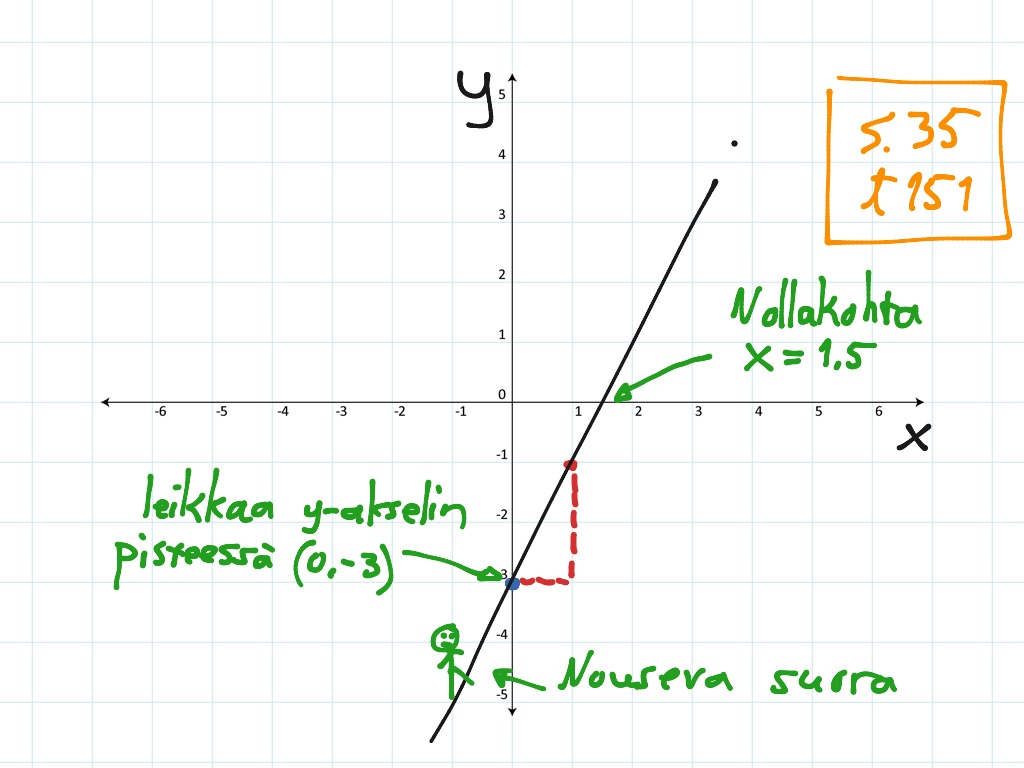 y
5
4
3
2
1
0
-1
-2
-3
-4
-5
-6 -5 -4 -3 -2 -1 1 2 3 4 5 6
x
s. 35
t 151
Nollakohta
x = 1,5
leikkaa y-akselin
pisteessä (0,-3)
Nouseva suora